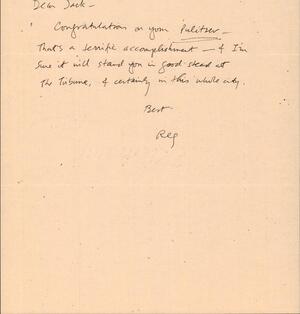 Dear Jack –
Congratulations on your Pulitzer –
that's a terrific accomplishment – & I'm
sure it will stand you in good stead at
the Tribune, & certainly in this whole city.
Best –
Reg